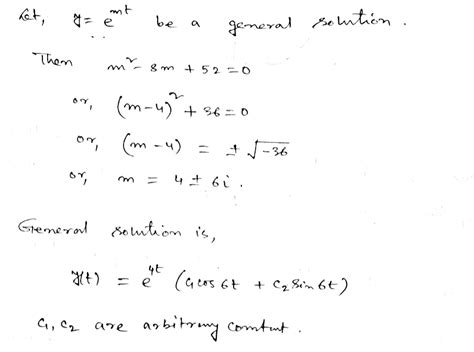 Let, y = e^{mt} be a general solution.
Then m² - 8m + 52 = 0
or, (m-4)² + 36 = 0
or, (m-4) = ± √-36
or, m = 4 ± 6i.
General solution is,
y(t) = e^{4t} (c₁ cos 6t + c₂ sin 6t)
c₁, c₂ are arbitrary constant.